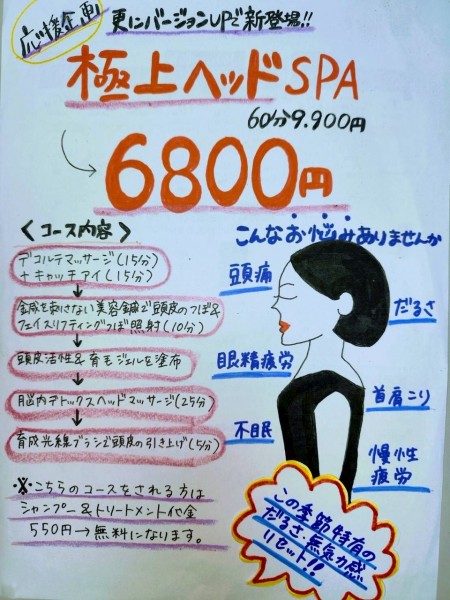 応援企画
更にバージョンUPで新登場!!
極上ヘッドSPA
60分9.900円
6800円
<コース内容>
デコルテマッサージ(15分)
+キャッチアイ(15分)
↓
鍼を刺さない美容鍼で頭皮のつぼ&
フェイスリフティングつぼ照射(10分)
↓
頭皮活性&育毛ジェルを塗布
↓
脳内デトックスヘッドマッサージ(25分)
↓
育成光線ブラシで頭皮の引き上げ(5分)
※こちらのコースをされる方は
シャンプー&トリートメント代金
550円→無料になります。
こんなお悩みありませんか
頭痛
だるさ
眼精疲労
首肩こり
不眠
慢性
疲労
この季節特有の
だるさ・無気力感
リセット!!